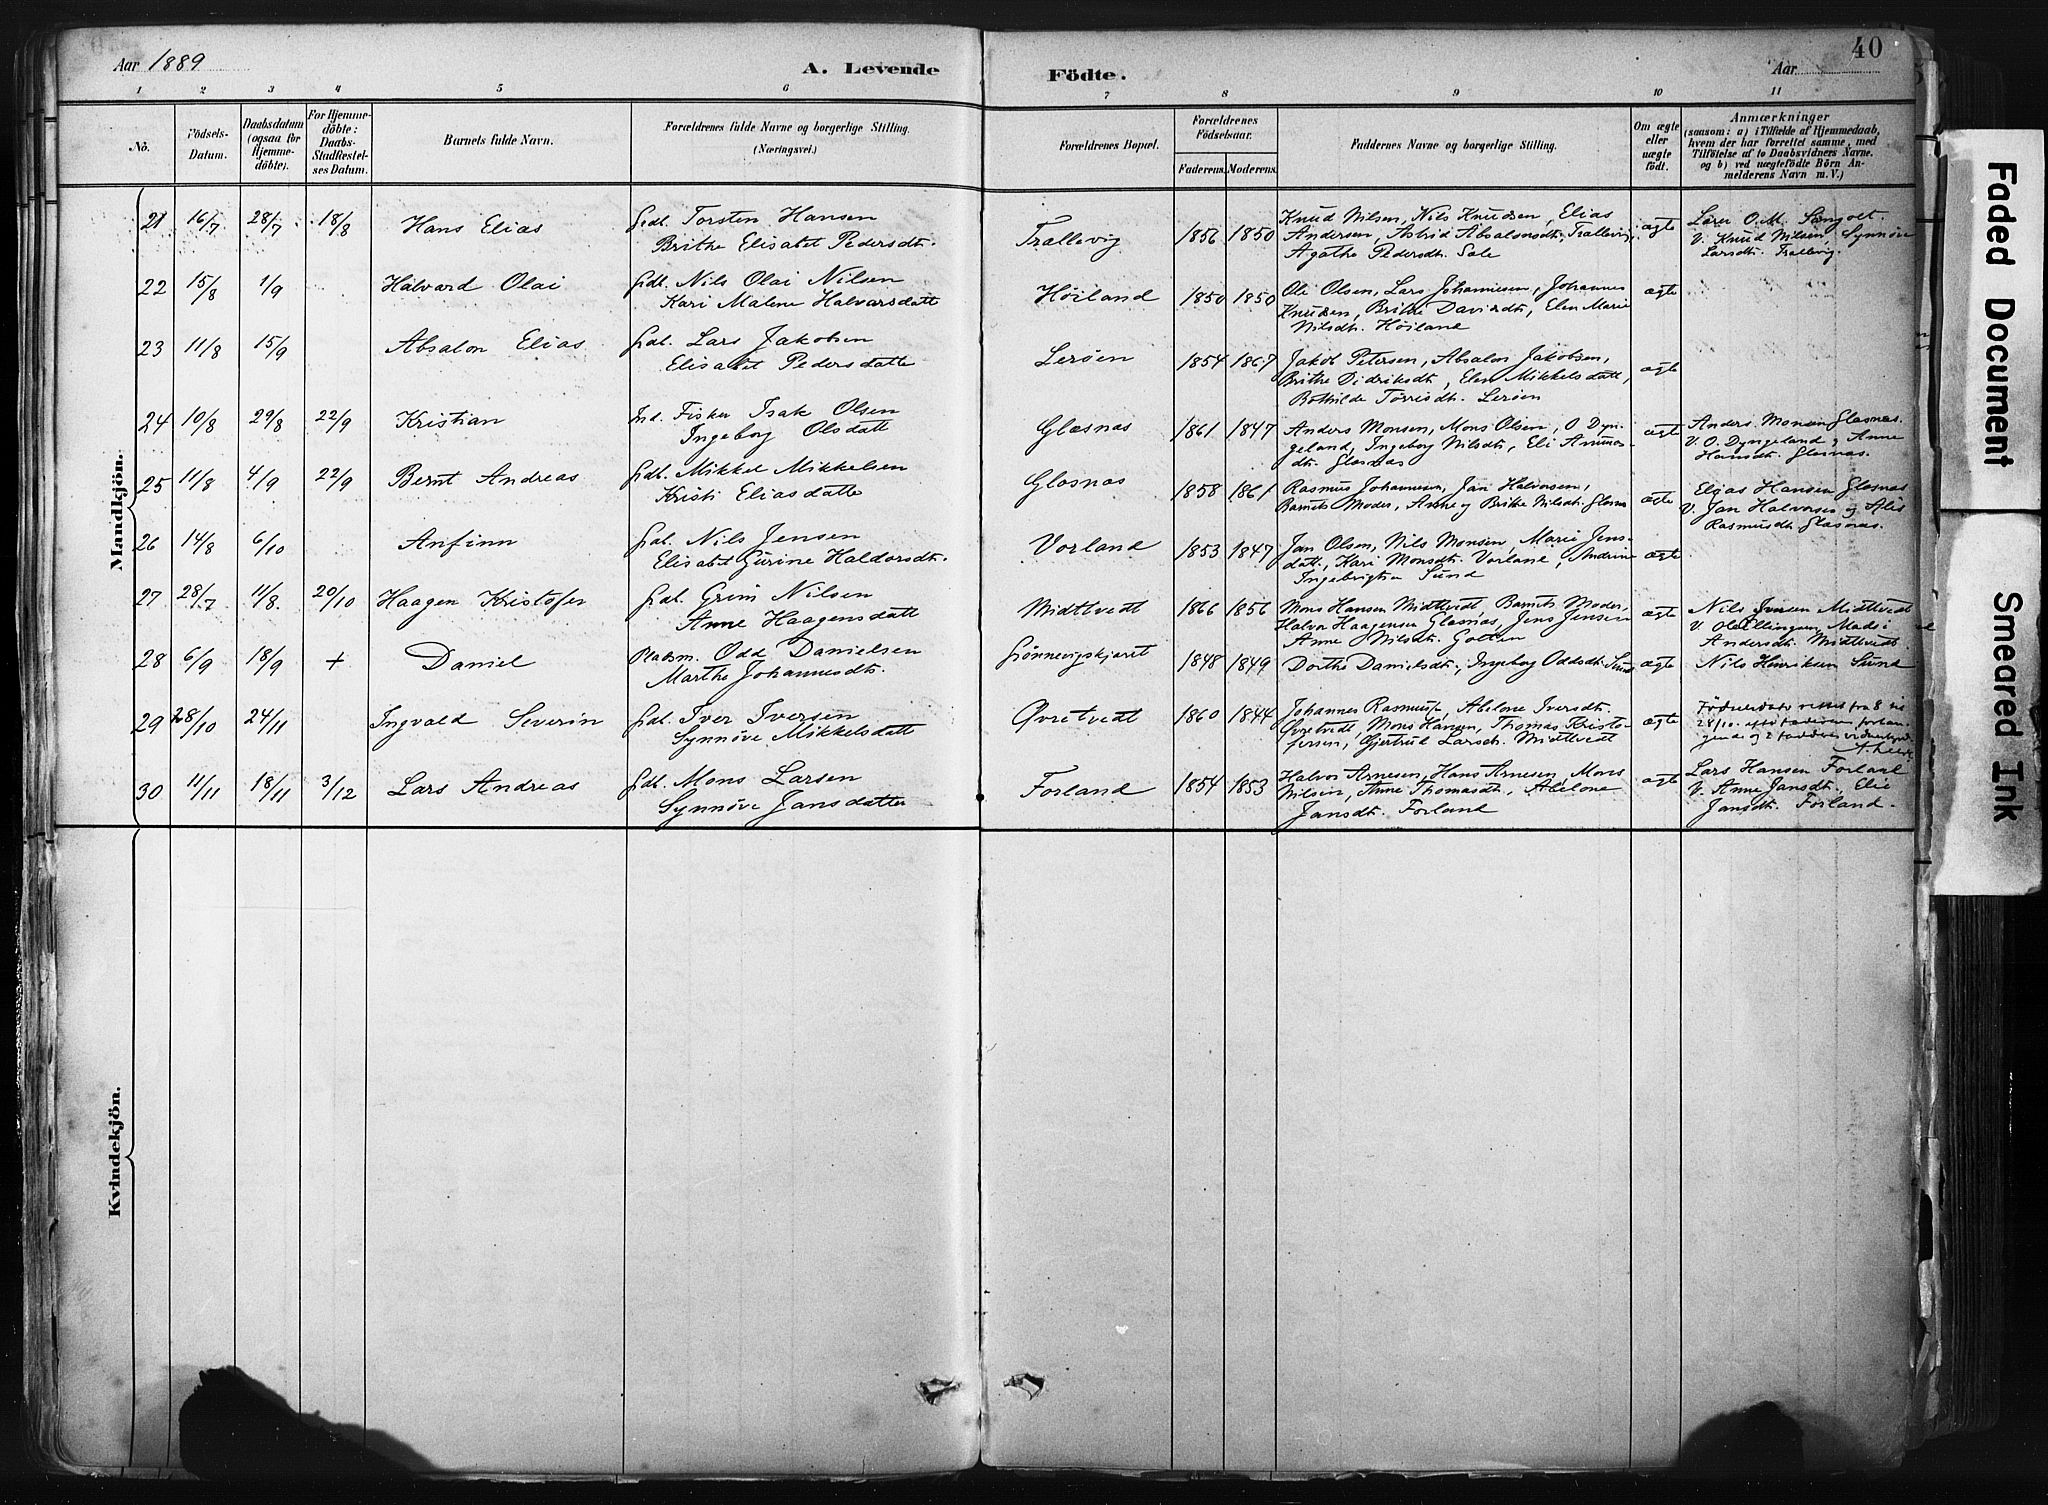 Aar 1889
A. Levende
Födte.
Aar
40
1 2 3 4 5 6 7 8 9 10 11
No.
Födsels-
Datum.
Daabsdatum
(ogsaa for
Hjemme-
döbte).
For Hjemme-
döbte:
Daabs-
Stadfæstel-
ses Datum.
Barnets fulde Navn.
Forældrenes fulde Navne og borgerlige Stilling.
(Næringsvei.)
Forældrenes Bopæl.
Forældrenes
Födselsaar.
Faderens. Moderens.
Faddernes Navne og borgerlige Stilling.
Om ægte
eller
uægte
födt.
Anmærkninger
(saasom: a) i Tilfælde af Hjemmedaab,
hvem der har forrettet samme, med
Tilföielse af to Daabsvidners Navne.
og b) ved uægtefödte Börn An-
melderens Navn m. V.)
Mandkjön.
21 16/7 28/7 18/8 Hans Elias
Gdb. Torsten Hansen
Brithe Elisabet Pedersdt.
Trallevig 1856 1850
Knud Nilsen, Nils Knudsen, Elias
Andersen, Astrid Absalonsdt. Trallevig,
Agathe Pedersdt. Sale
ægte
Lærer O. M.
V. Knud Nilsen, Synnöve
Larsdt. Trallevig.
22 15/8 1/9 Halvard Olai
Gdb. Nils Olai Nilsen
Kari Malene Halvarsdatt
Höiland 1850 1850
Ole Olsen, Lars Johannesen, Johannes
Knudsen, Brithe Davidsdt, Elen Marie
Nilsdt. Höiland
ægte
23 11/8 15/9 Absalon Elias
Gdb. Lars Jakobsen
Elisabet Pedersdatte
Leröen 1854 1867
Jakob Petersen, Absalon Jakobsen,
Brithe Didriksdt, Elen Mikkelsdatt,
Bothilde Torrisdt. Leröen
ægte
24 10/8 29/8 22/9 Kristian
Ind. Fisker Isak Olsen
Ingeborg Olsdatt
Glæsnæs 1861 1847
Anders Monsen, Mons Olsen, O Dyn-
geland, Ingeborg Nilsdt, Eli
dt. Glæsnæs
ægte
Anders Monsen Glæsnæs.
V. O. Dyngeland og Anne
Hansdt. Glæsnæs.
25 11/8 4/9 22/9 Bernt Andreas
Gdb. Mikkel Mikkelsen
Kristi Eliasdatte
Glæsnæs 1858 1861
Rasmus Johannesen, Jan Halvorsen,
Barnets Moder, Anne og Brithe Nilsdt. Glæsnæs
ægte
Elias Hansen Glæsnæs
V. Jan Halvorsen og
Rasmusdt. Glæsnæs.
26 14/8 6/10 Anfinn
Gdb. Nils Jensen
Elisabet Gurine Haldorsdt.
Vorland 1853 1847
Jan Olsen, Nils Monsen, Marie Jens-
datt., Kari Monsdt. Vorland, Andrine
Ingebrigtsn Sund
ægte
27 28/7 11/8 20/10 Haagen Kristofer
Gdb. Grim Nilsen
Anne Haagensdatt
Midttvedt 1866 1856
Mons Hansen Midttvedt, Barnets Moder,
Halvor Haagensen Glæsnæs, Jens Jensen
Anne Nilsdt.
ægte
Nils Jensen Midttvedt
V. Ole Ellingsen,
Andersdt. Midttvedt.
28 6/9 18/9 + Daniel
Pladsm. Odd Danielsen
Marthe Johannesdt.
Grönnevigskjæret 1848 1849
Dorthe Danielsdt., Ingeborg Oddsdt Sund
ægte
Nils Henriksen Sund
29 28/10 24/11 Ingvald Severin
Gdb. Iver Iversen
Synnöve Mikkelsdatt
Övretvedt 1860 1844
Johannes Rasmussn, Abelone Iversdt.
Övretvedt, Mons Hansen, Thomas Kristo-
fersen, Gjertrud Larsdt. Midttvedt
ægte
Födselsdato rettet fra 8 til
28/10
30 11/11 18/11 3/12 Lars Andreas
Gdb. Mons Larsen
Synnöve Jansdatte
Forland 1854 1853
Halvor Arnesen, Hans Arnesen, Mons
Nilsen, Anne Thomasdt, Abelone
Jansdt. Forland
ægte
Lars Hansen Forland
V. Anne Jansdt., Elie
Jansdt. Forland.
Kvindekjön.
Faded Document
Smeared Ink